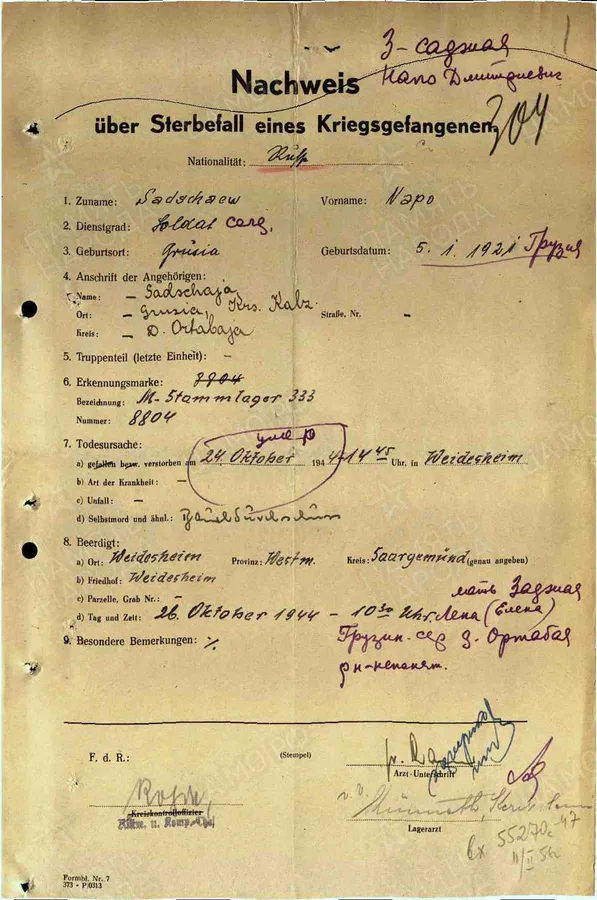 З-саджая
Напо Дмитриевич
Nachweis
über Sterbefall eines Kriegsgefangenen
304
Nationalität: Russ
1. Zuname: Sadschaew Vorname: Napo
2. Dienstgrad: Soldat солд.
3. Geburtsort: Grusia Geburtsdatum: 5. 1. 1921 Грузия
4. Anschrift der Angehörigen:
Name: – Sadschaja
Ort: – Grusia, Krs. Kalz. Straße, Nr. –
Kreis: – D. Ortabaja
5. Truppenteil (letzte Einheit): –
6. Erkennungsmarke: 8804
Bezeichnung: M-Stammlager 333
Nummer: 8804
7. Todesursache: умер
a) gefallen bezw. verstorben am 24. Oktober 1944 - 14 45 Uhr, in Weidesheim
b) Art der Krankheit: –
c) Unfall: –
d) Selbstmord und ähnl.: Bauchdurchschuss
8. Beerdigt:
a) Ort: Weidesheim Provinz: Westm. Kreis: Saargemünd (genau angeben)
b) Friedhof: Weidesheim
c) Parzelle, Grab Nr.: –
мать Заджая
d) Tag und Zeit: 26. Oktober 1944 – 10 30 Uhr. Лена (Елена)
9. Besondere Bemerkungen: ٪ Грузин. сер д. Ортабая
рн-непонят.
F. d. R.: (Stempel)
Arzt-Unterschrift
Kreiskontrolloffizier
Lagerarzt
вх 55270с-47
Formbl. Nr. 7
373 - P/0313